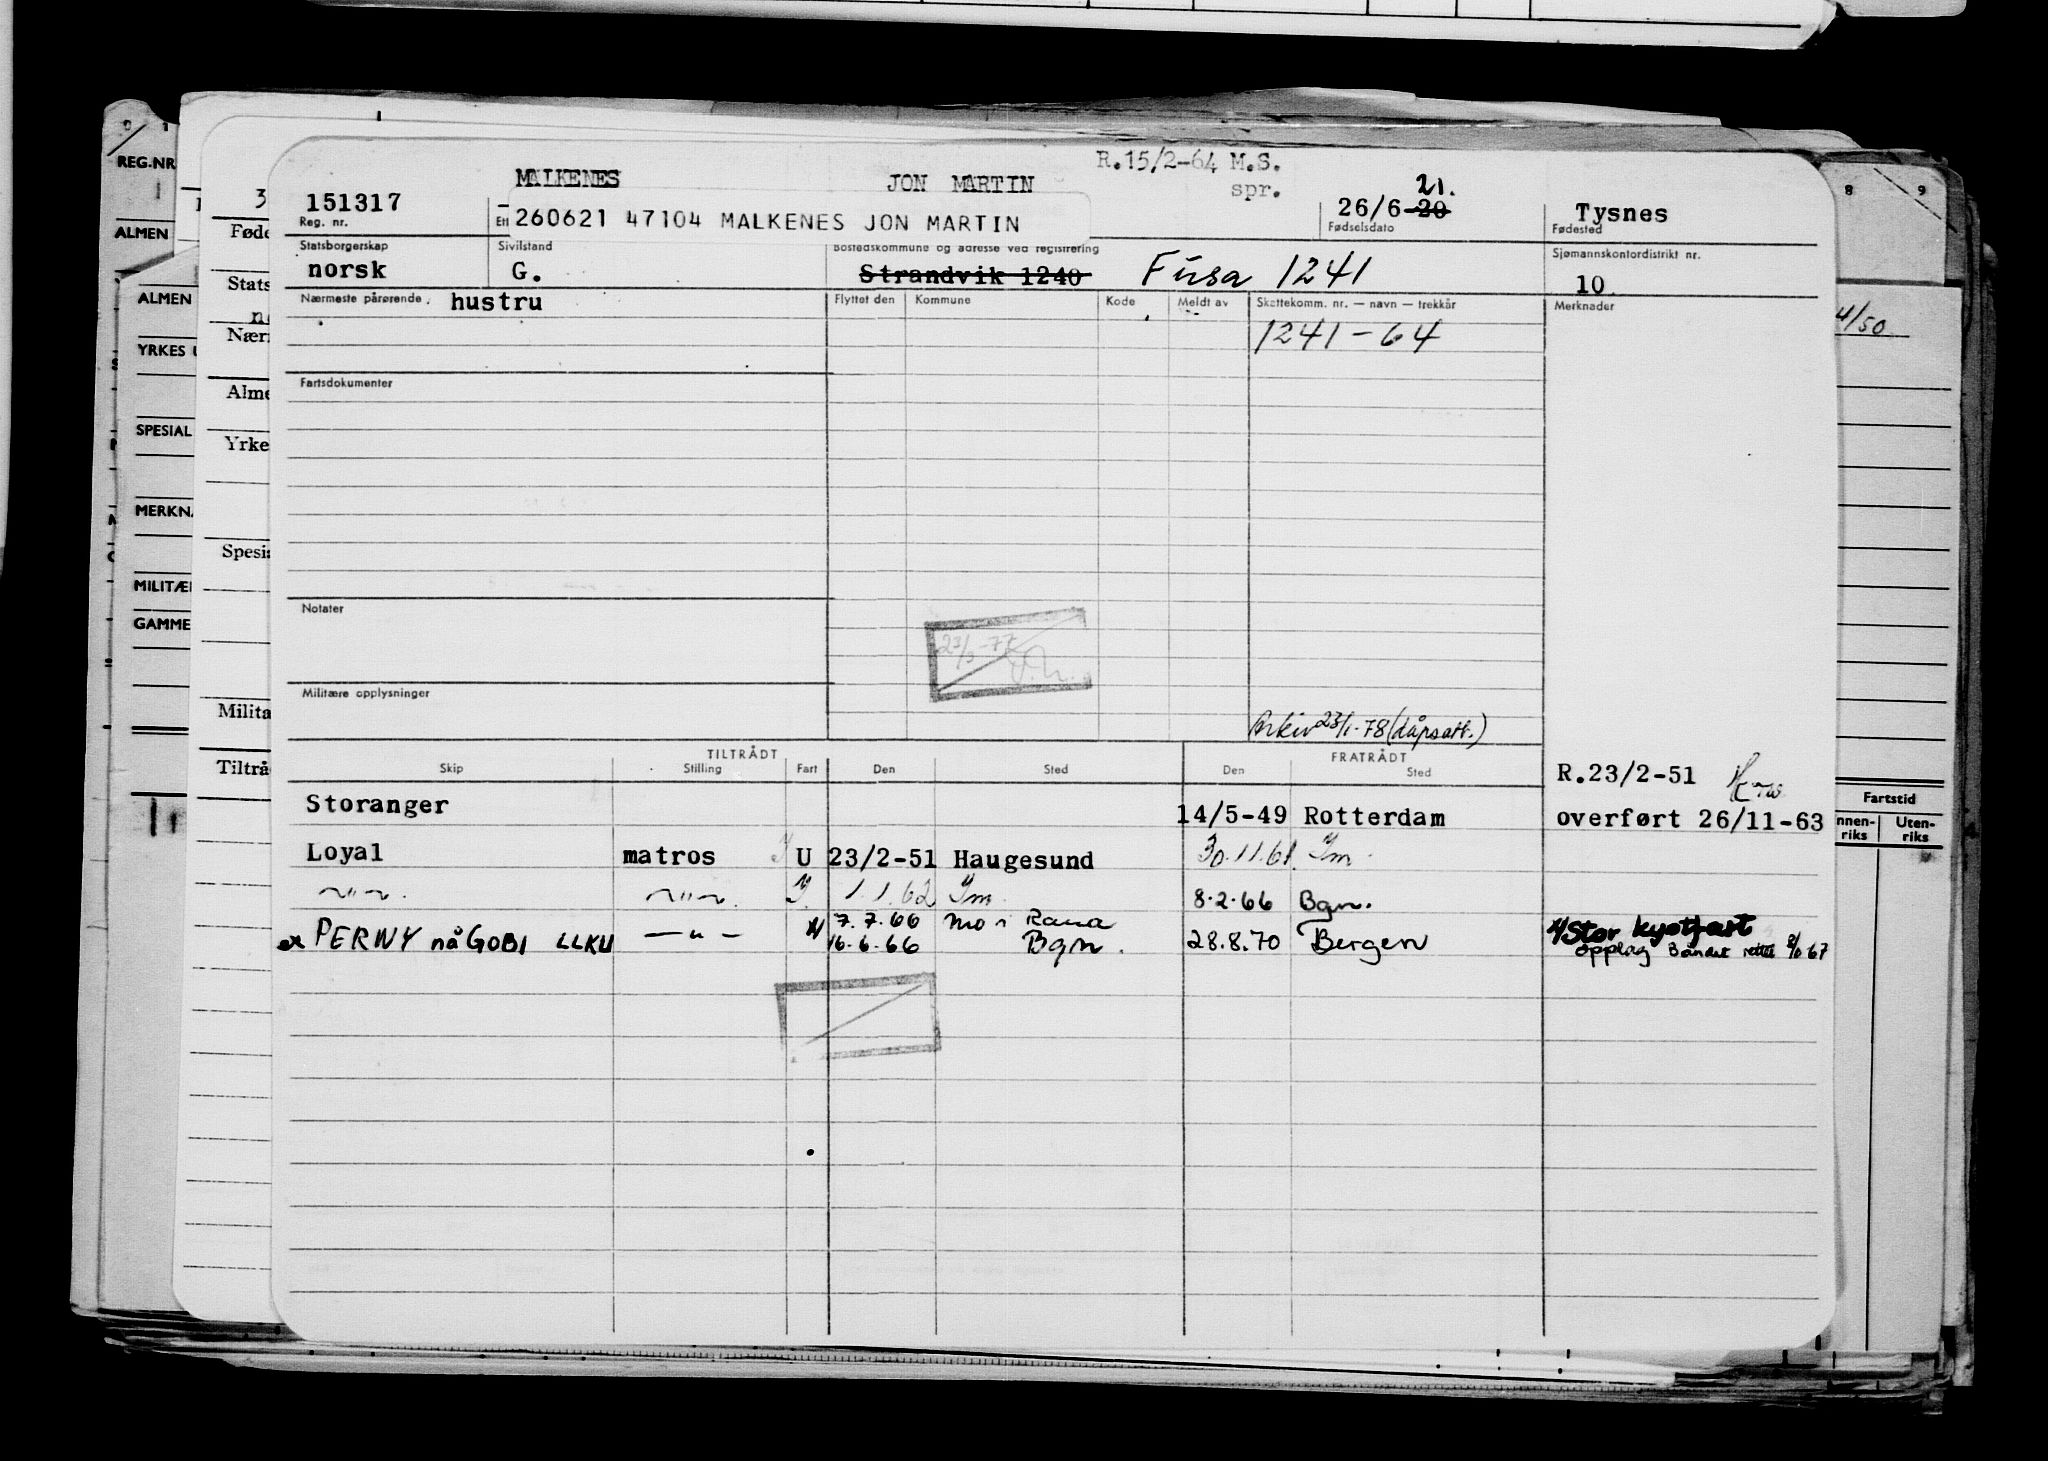 R.15/2-64 M.S.
spr.
MALKENES JON MARTIN
151317
Reg. nr.
260621 47104 MALKENES JON MARTIN
21.
26/6-20
Fødselsdato
Tysnes
Fødested
Statsborgerskap
norsk
Sivilstand
G.
Bostedskommune og adresse ved registrering
Strandvik 1240 Fusa 1241
Sjømannskontordistrikt nr.
10
Nærmeste pårørende hustru
Flyttet den Kommune Kode Meldt av Skattekomm. nr. — navn — trekkår Merknader
1241-64
Fartsdokumenter
Notater
23/3-77
Militære opplysninger
Arkiv 23/1-78 (dåpsatt.)
TILTRÅDT FRATRÅDT
Skip Stilling Fart Den Sted Den Sted
R.23/2-51
Storanger 14/5-49 Rotterdam overført 26/11-63
Loyal matros U 23/2-51 Haugesund 30.11.61 Im.
—"— —"— 1.1.62 Im. 8.2.66 Bgn.
7.7.66 Mo i Rana
ex PERNY nå GOBI LLKU —"— 16.6.66 Bgn. 28.8.70 Bergen
Stor kystfart
opplag
REG.NR
ALMEN
ALMEN
YRKES
SPESIAL
MERKNA
MILITÆR
GAMME
3
Føde
Stats
Nær
Alme
Yrke
Spesia
Milita
Tiltrå
8 9
4/50
Fartstid
nnen-
riks
Uten-
riks